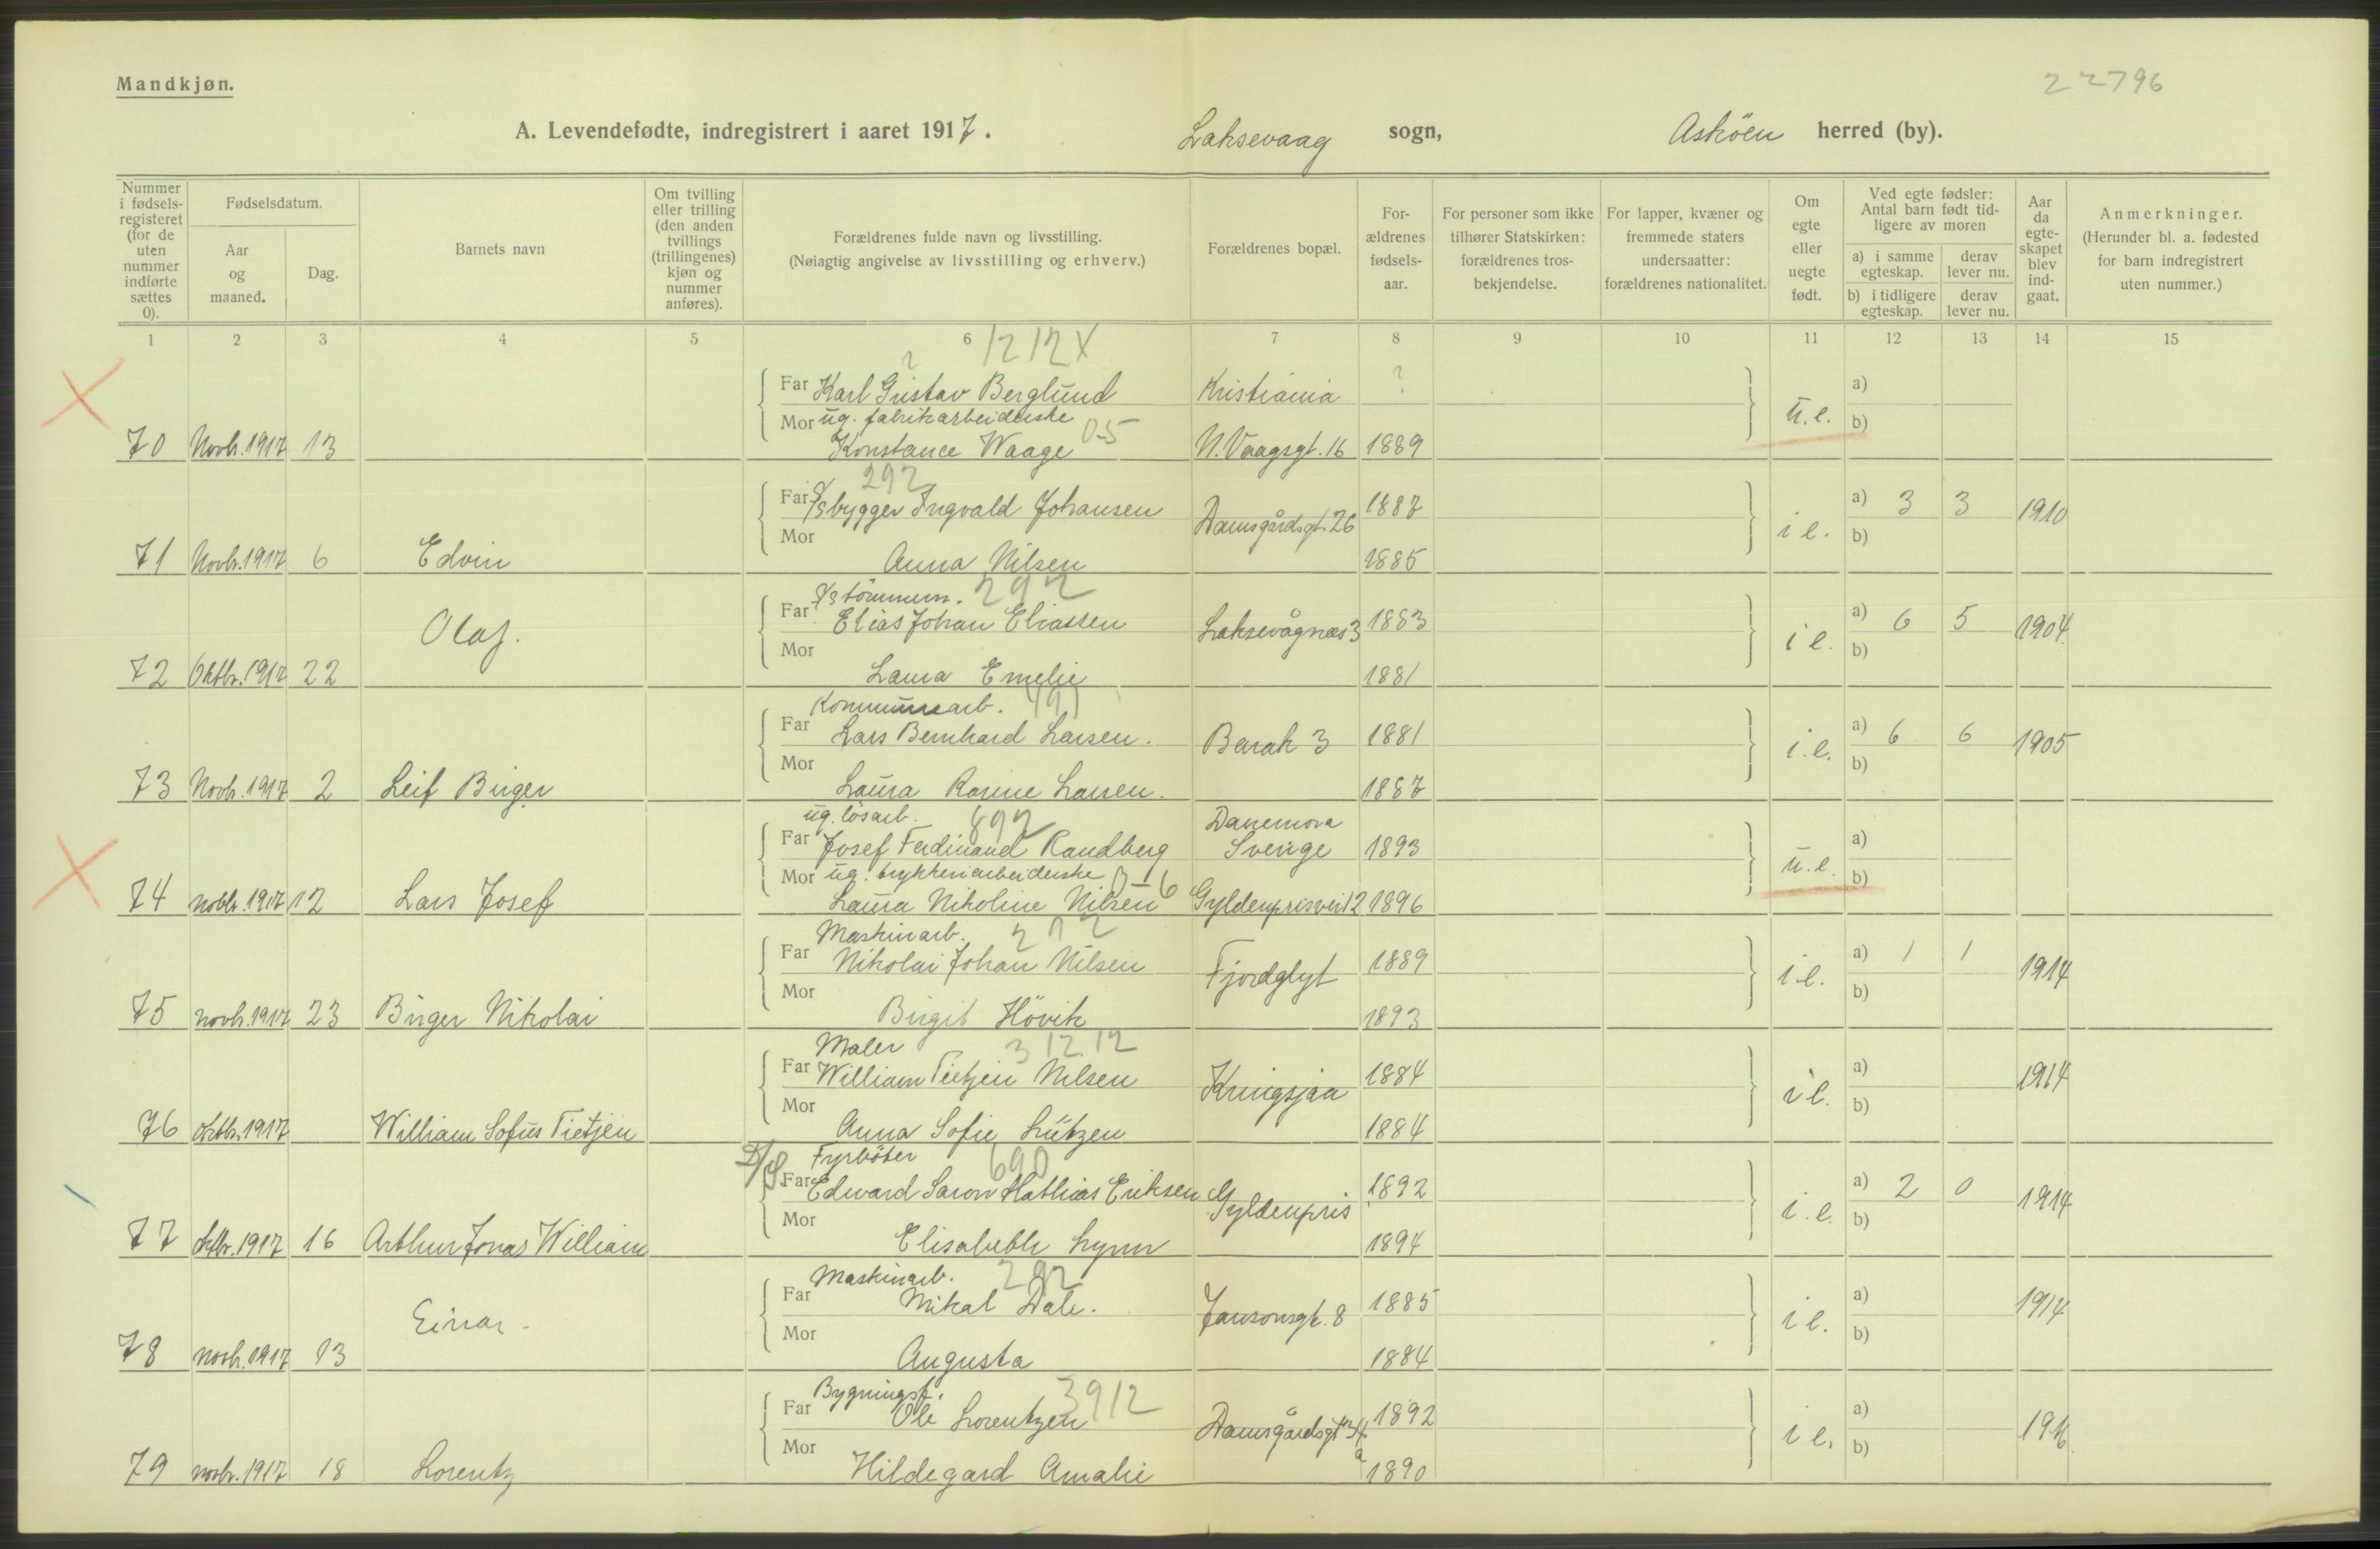 Mandkjøn.
22796
A. Levendefødte, indregistrert i aaret 1917. Laksevaag sogn, Asköen herred (by).
Nummer i fødselsregisteret (for de uten nummer indførte sættes 0).
Fødselsdatum.
Aar og maaned.
Dag.
Barnets navn
Om tvilling eller trilling (den anden tvillings (trillingenes) kjøn og nummer anføres).
Forældrenes fulde navn og livsstilling.
(Nøiagtig angivelse av livsstilling og erhverv.)
Forældrenes bopæl.
Forældrenes fødselsaar.
For personer som ikke tilhører Statskirken: forældrenes trosbekjendelse.
For lapper, kvæner og fremmede staters undersaatter: forældrenes nationalitet.
Om egte eller uegte født.
Ved egte fødsler: Antal barn født tidligere av moren
a) i samme egteskap. derav lever nu.
b) i tidligere egteskap. derav lever nu.
Aar da egteskapet blev indgaat.
Anmerkninger.
(Herunder bl. a. fødested for barn indregistrert uten nummer.)
1 2 3 4 5 6 7 8 9 10 11 12 13 14 15
1212X
?
Far Karl Gustav Berglund Kristiania ? a)
Mor ug. fabrikarbeiderske u.e. b)
70 Novb. 1917 13 Konstance Waage 0-5 N. Vaagsgt. 16 1889
292
Far S/sbygger Ingvald Johansen Damsgårdsgt. 26 1887 a) 3 3 1910
Mor i e. b)
71 Novbr. 1917 6 Edvin Anna Nilsen 1885
S/stömmerm. 292
Far Elias Johan Eliassen Laksevågnæs 3 1883 a) 6 5 1904
Olaf. Mor i e. b)
72 Oktbr. 1917 22 Laura Emelie 1881
Kommunearb. 491
Far Lars Bernhard Larsen. Barak 3 1881 a) 6 6 1905
Mor i.e. b)
73 Novb. 1917 2 Leif Birger Laura Karine Larsen. 1887
ug. lösarb. 892 Danemora
Far Josef Ferdinand Randberg Sverige 1893 a)
Mor ug. trykkeriarbeiderske 0-6 u.e. b)
74 novbr. 1917 12 Lars Josef Laura Nikoline Nilsen Gyldenprisvei 12 1896
Maskinarb. 292
Far Nikolai Johan Nilsen Fjordglyt 1889 a) 1 1 1914
Mor i e. b)
75 novb. 1917 23 Birger Nikolai Birgit Hövik 1893
Maler 31212
Far William Tietjen Nilsen Kringsjaa 1884 a) 1914
Mor i e. b)
76 oktb. 1917 William Sofus Tietjen Anna Sofie Lützen 1884
D/S. Fyrböter 690
Far Edward Saron Mathias Eriksen Gyldenpris 1892 a) 2 0 1914
Mor i.e. b)
77 1917 16 Arthur Jonas William Elisabeth Lynn 1894
Maskinarb. 292
Far Mikal Dale. Jansonsgt. 8 1885 a) 1914
Einar. Mor i e. b)
78 novb. 1917 13 Augusta 1884
Bygningsf. 3912
Far Ole Lorentzen Damsgårdsgt 34 a 1892 a) 1916
Mor i e. b)
79 novbr. 1917 18 Lorentz Hildegard Amalie 1890